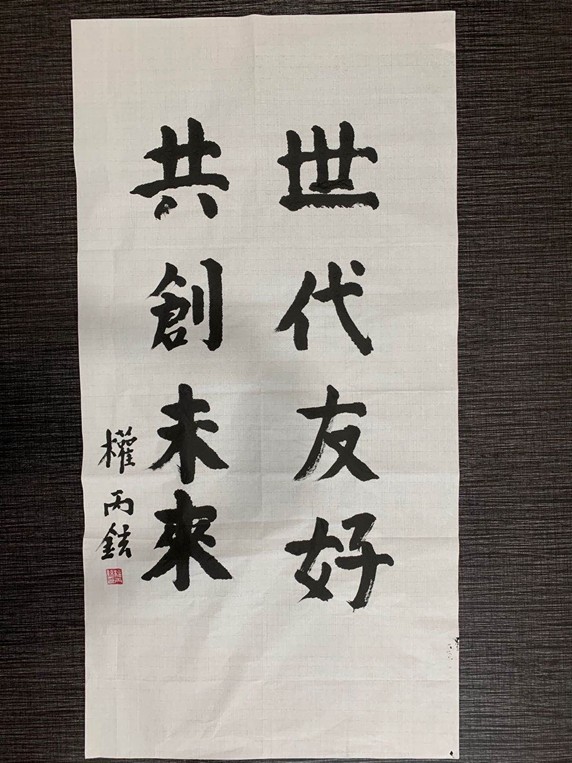 世代友好
共創未來
權丙鉉